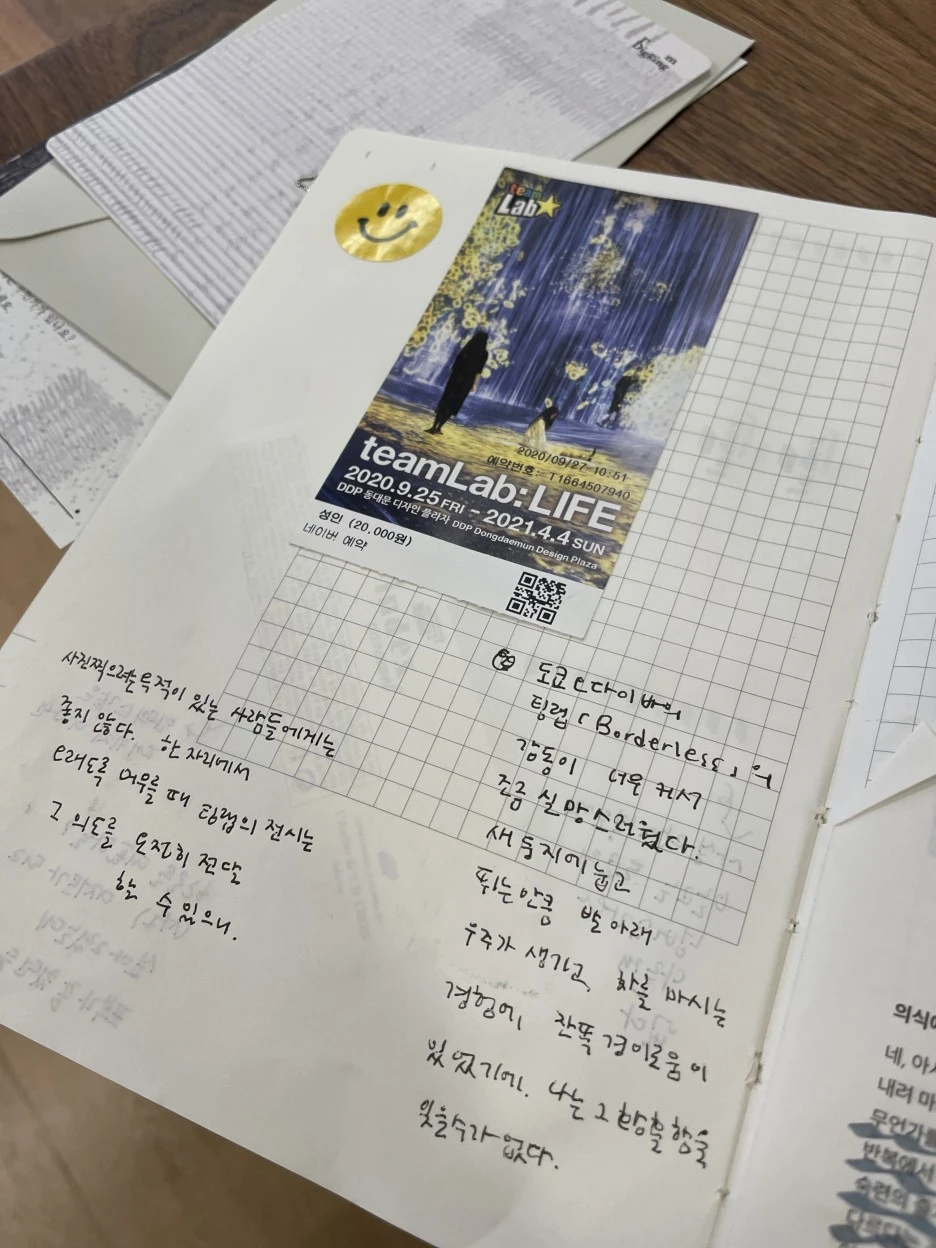 Digging
team
Lab
2020/09/27 10:51
예약번호: T1664507940
teamLab: LIFE
2020.9.25 FRI - 2021.4.4 SUN
DDP 동대문 디자인 플라자 DDP Dongdaemun Design Plaza
성인 (20,000원)
네이버 예약
도쿄 오다이바의
팀랩「Borderless」의
감동이 너무 커서
조금 실망스러웠다.
새 둥지에 눕고
뛰는 만큼 발 아래
우주가 생기고, 차를 마시는
경험에 잔뜩 경이로움이
있었기에. 나는 그 황홀함을
잊을수가 없다.
사진찍으려는 목적이 있는 사람들에게는
좋지 않다. 한 자리에서
오래도록 머무를 때 팀랩의 전시는
그 의도를 온전히 전달
할 수 있으니.
네, 아
내려 마
무언가를
반복에서
숙련의